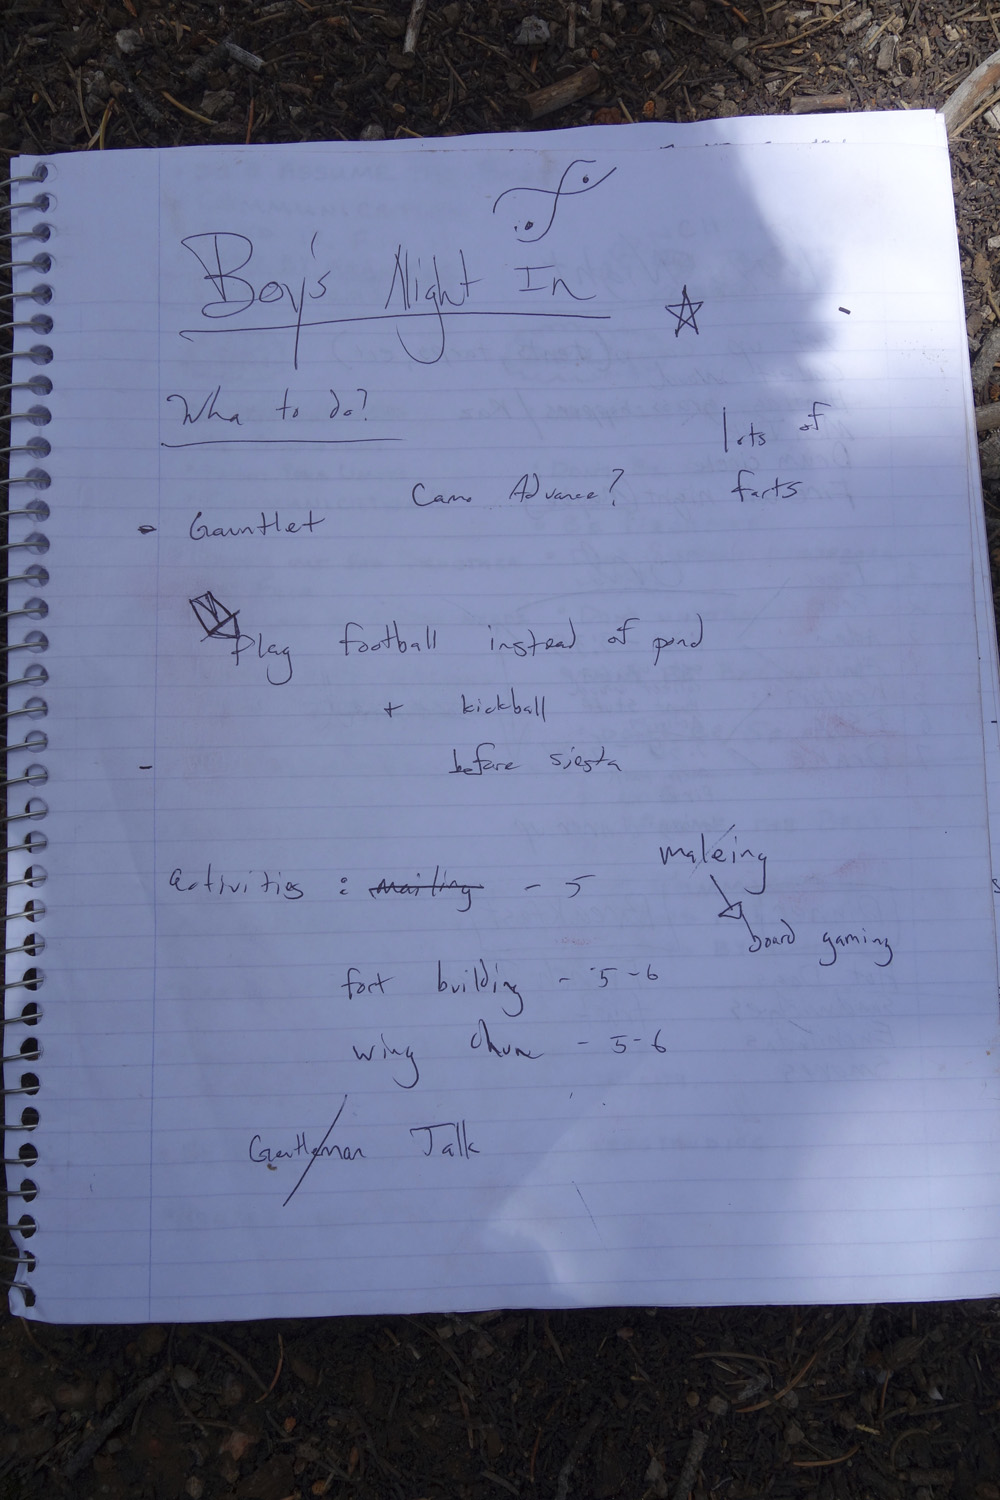 Boy's Night In
Wha to do?
lots of
farts
Came Advance?
Gauntlet
Play football instead of pond
+ kickball
before siesta
activities : mailing - 5
making
board gaming
fort building - 5-6
wing chun - 5-6
Gentleman Talk